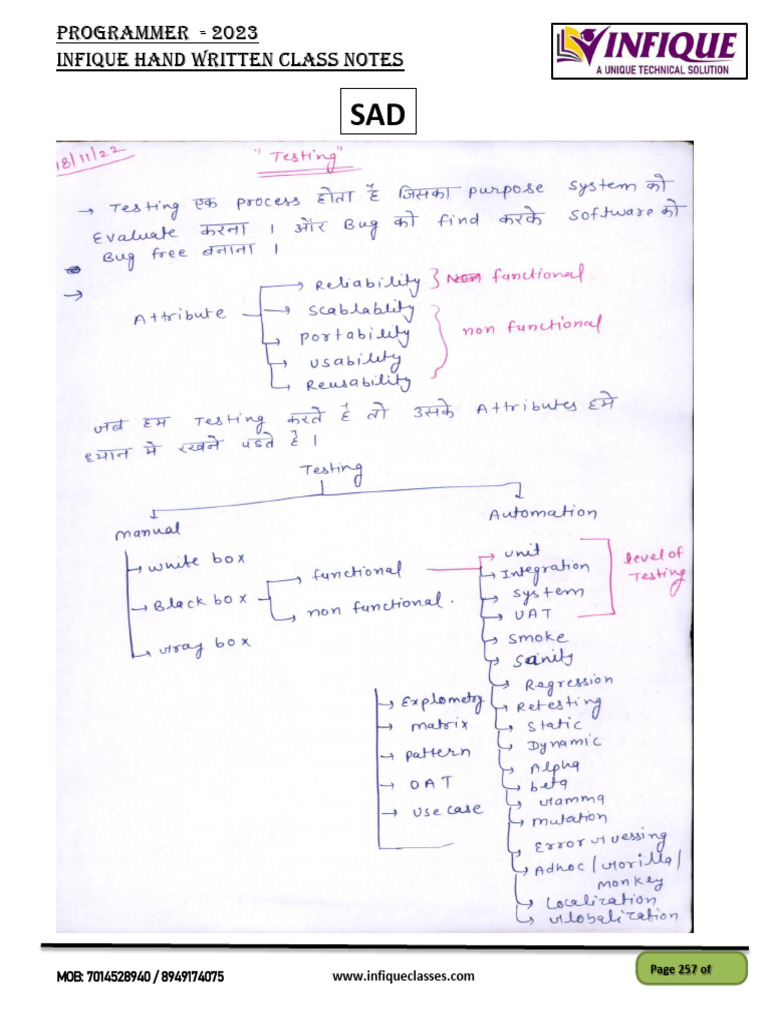 PROGRAMMER = 2023
INFIQUE HAND WRITTEN CLASS NOTES
INFIQUE
A UNIQUE TECHNICAL SOLUTION
SAD
18/11/22
"Testing"
→ Testing एक process होता है जिसका purpose system को
Evaluate करना । और Bug को find करके software को
Bug free बनाना ।
→
Attribute
Reliability } Non functional
Scablablity
Portability
Usability
Reusability
non functional
जब हम Testing करते है तो उसके Attributes हमे
ध्यान मे रखने पडते है ।
Testing
Manual
White box
Black box
functional
non functional.
Gray box
Automation
Unit
Integration
System
UAT
level of
Testing
Smoke
Sanity
Regression
Retesting
Static
Dynamic
Alpha
beta
Gamma
Mutation
Error Guessing
Adhoc / Gorilla /
monkey
Localization
Globalization
Explometry
matrix
pattern
OAT
Use case
MOB: 7014528940 / 8949174075
www.infiqueclasses.com
Page 257 of